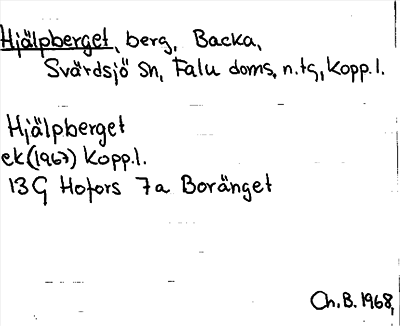 Hjälpberget, berg, Backa,
Svärdsjö Sn, Falu doms, n.tg, Kopp.l.
Hjälpberget
ek (1967) Kopp.l.
13G Hofors 7a Boränget
Ch.B. 1968,